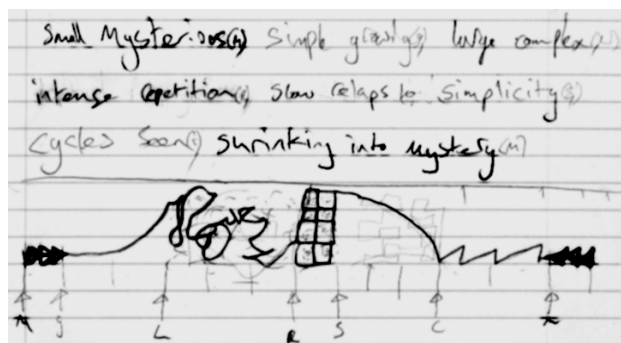 Small Mysterious(M) simple growth(g) large complex(L)
intense repetition(r) slow relaps to simplicity(s)
cycles seen(c) shrinking into mystery(M)
M S L R S C M